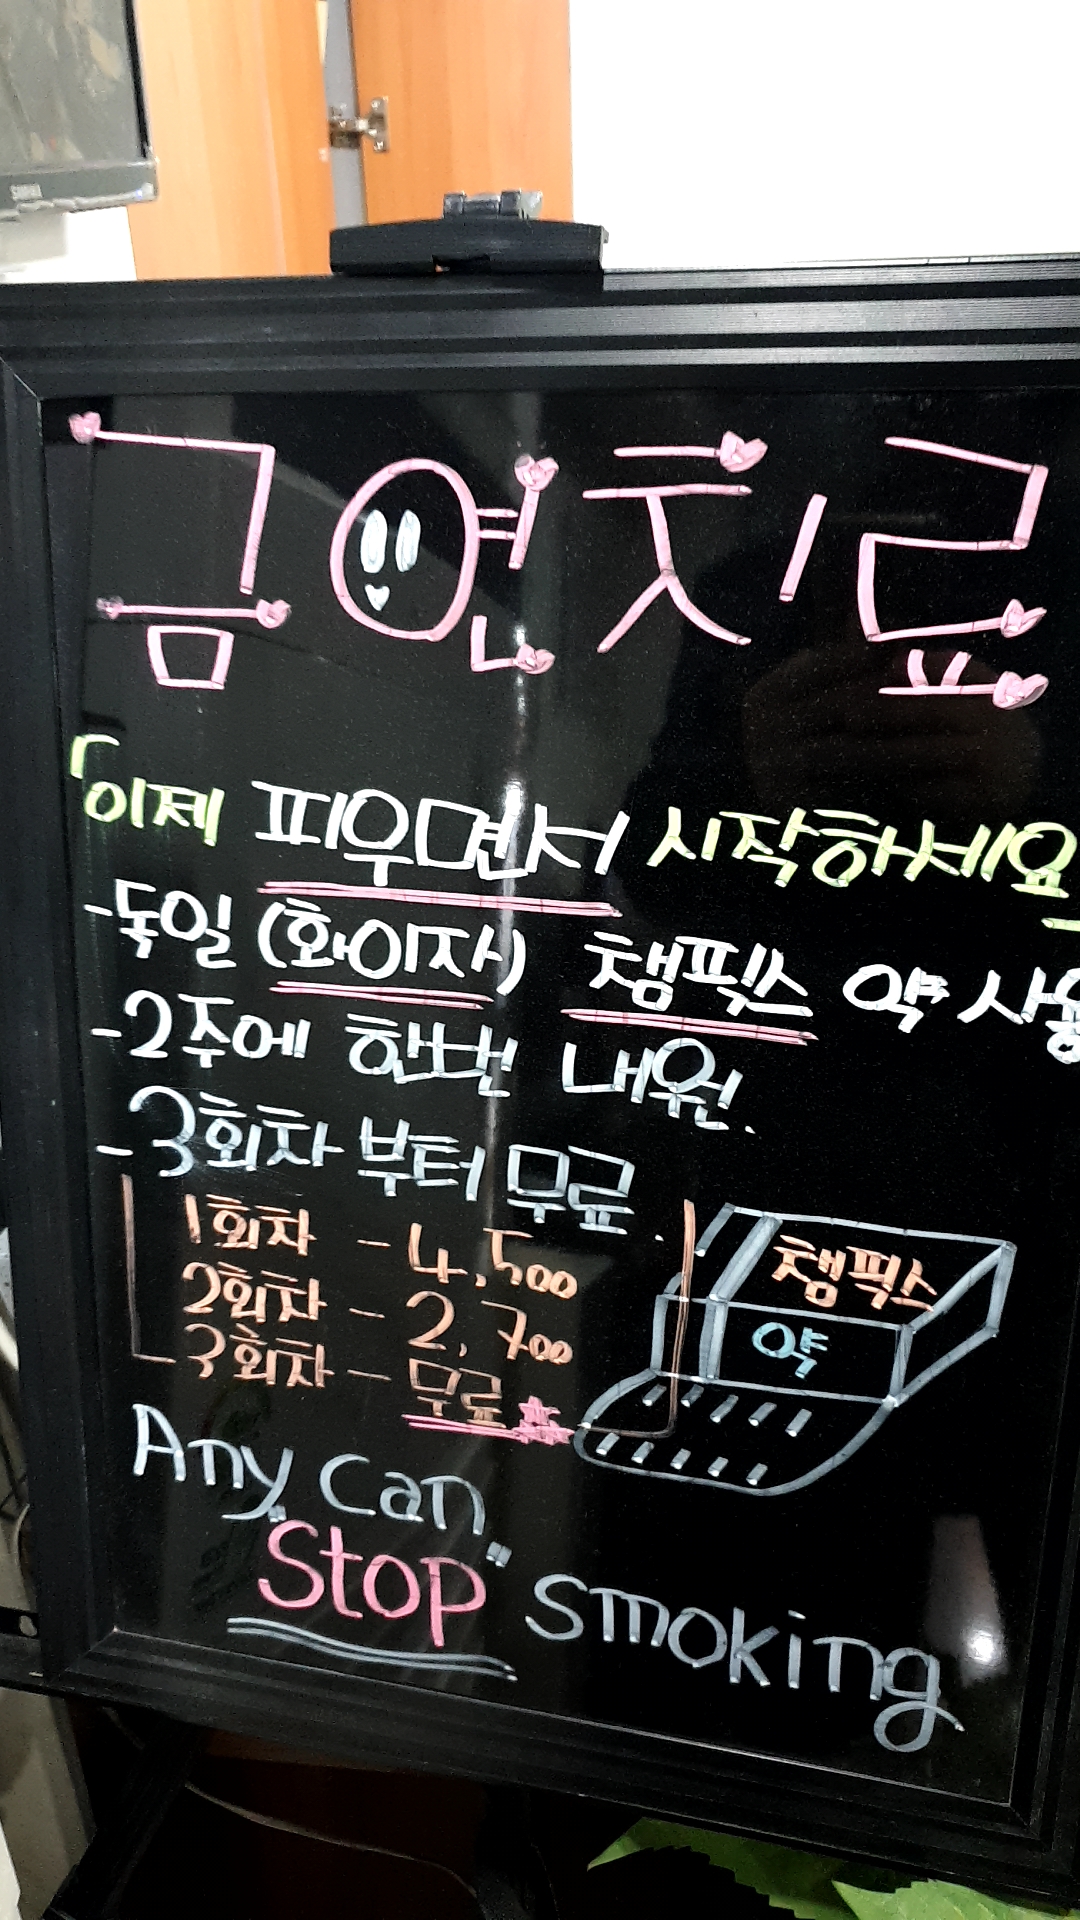 금연치료
「이제 피우면서 시작하세요
-독일 (화이자) 챔픽스 약 사용
-2주에 한번 내원.
-3회차 부터 무료.
1회차 - 4,500
2회차 - 2,700
3회차 - 무료
챔픽스
약
Any can
"Stop" smoking